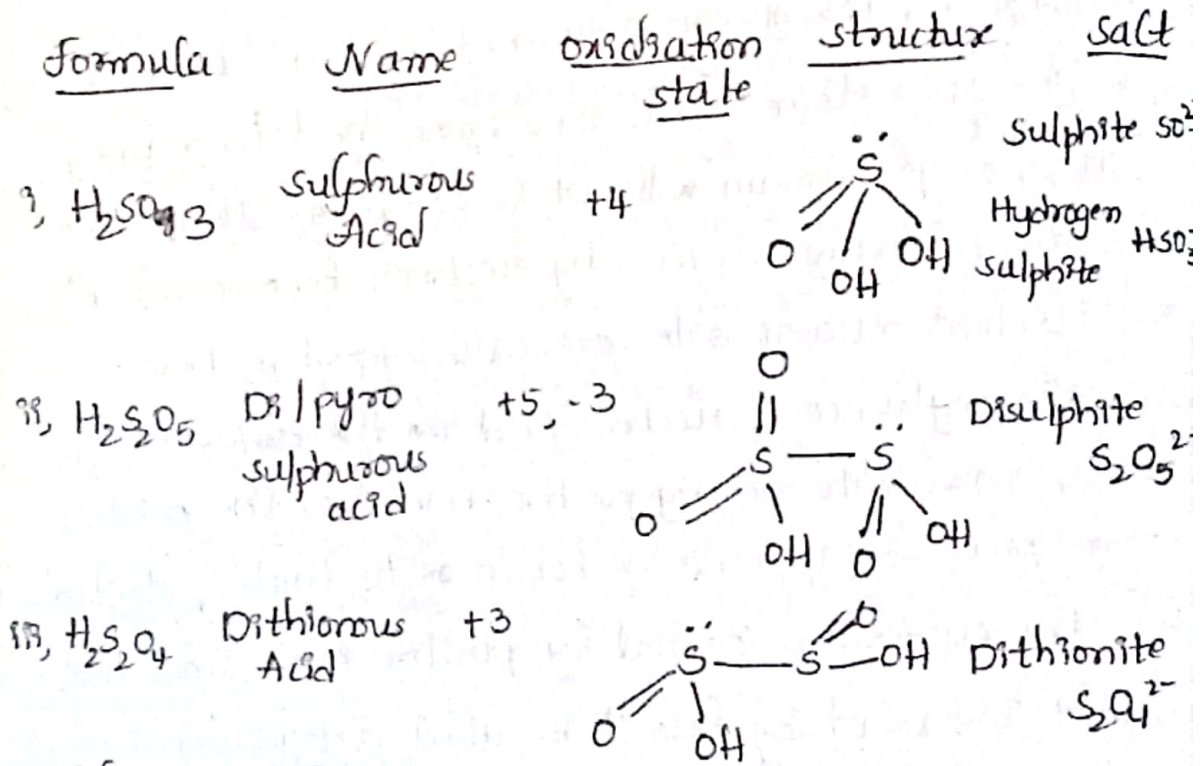 Formula Name oxidiation structux salt
state
i, H₂SO₃ Sulphurous Acid +4 S O OH OH Sulphite SO²⁻
Hydrogen sulphite HSO₃⁻
ii, H₂S₂O₅ Di/pyro sulphurous acid +5, -3 O S S O OH O OH Disulphite S₂O₅²⁻
iii, H₂S₂O₄ Dithionous Acid +3 S S O OH O OH Dithionite S₂O₄²⁻